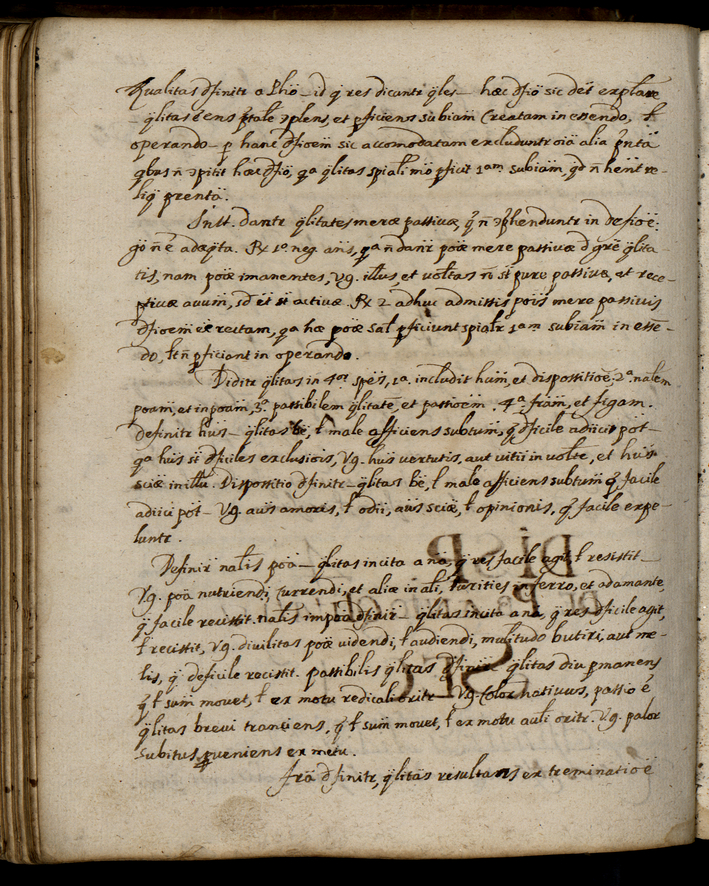 Qualitas dfinitr a Pho – id q̃ res dicantr q̃les – hæc dfiõ sic deƀt explare
– q̃litas ẽ ens ptale ɔplens, et pficiens subiam Creatam in essendo, ł
operando – p hanc dfioem sic accomodatam excluduntr oiã alia pntã
qbus ñ ɔpitit hæc dfiõ, qa q̃litas spiali mõ pficit 1am subiam, qd ñ hent re-
liq̃ prentã.
Inst. dantr q̃litates meræ passivæ, q̃ ñ ɔphenduntr in defioẽ:
go ñ ẽ adæq̃ta. Rx 1o neg. añs, qa ñ danr poæ mere passivæ d grẽ q̃lita-
tis, nam poæ imanentes, Vg. illus, et voltas ñ st pure passivæ, et rece-
ptivæ auum, sd et st activæ. Rx 2 adhuc admissis pois mere passivis
dfioem eẽ rectam, qa hæ poæ sal pficiunt spialr 1am subiam in essẽ-
do, lt ñ pficiant in operando.
Diditr q̃litas in 4or speis, 1a includit hum, et dispossitioẽ; 2a nalem
poam, et inpoam, 3a passibilem q̃litatẽ, et passioẽm, 4a fram, et figam.
Definitr hus – q̃litas bẽ, ł male afficiens subtum, q̃ dficile adiici pot –
qa hus st dficiles exclusiois, Vg. hus vertutis, aut vitii in volte, et hus
sciæ in illu. Dispossitio dfinitr – q̃litas bẽ, ł male afficiens subtum q̃ facile
adiici pot – Vg. aus amoris, ł odii, aus sciæ, ł opinionis, q̃ facile expe-
luntr.
Definir nalis poã – q̃litas incita a nã, q̃ res facile agit, ł resistit –
Vg. poã nutriendi, Currendi, et aliæ in ali, durities in ferro, et adamante,
q̃ facile recistit. nalis impoã dfinir – q̃litas incita a nã, q̃ res dficile agit,
ł recistit, Vg. divilitas poæ videndi, ł audiendi, mulitudo butiri, aut me-
lis, q̃ deficile recistit. passibilis q̃litas dfinir – q̃litas diu pmanens
q̃ ł sum movet, ł ex motu redicali oritr – Vg. Color nativus, passio ẽ
q̃litas brevi tranciens, q̃ ł sum movet, ł ex motu auli oritr. Vg. palor
subitus pveniens ex metu.
frã dfinitr, q̃litas resultans ex treminatioẽ